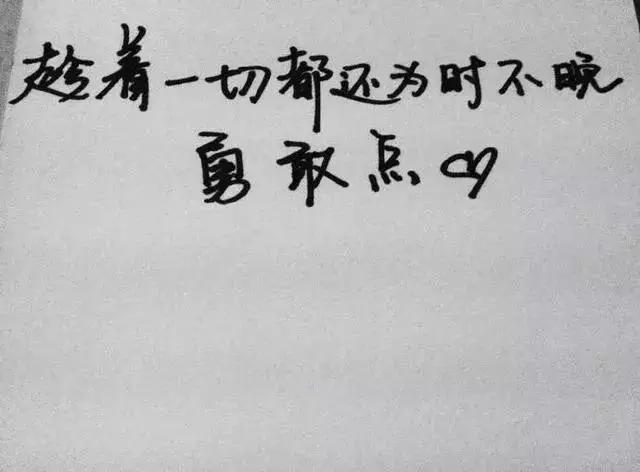 趁着一切都还为时不晚
勇敢点♡